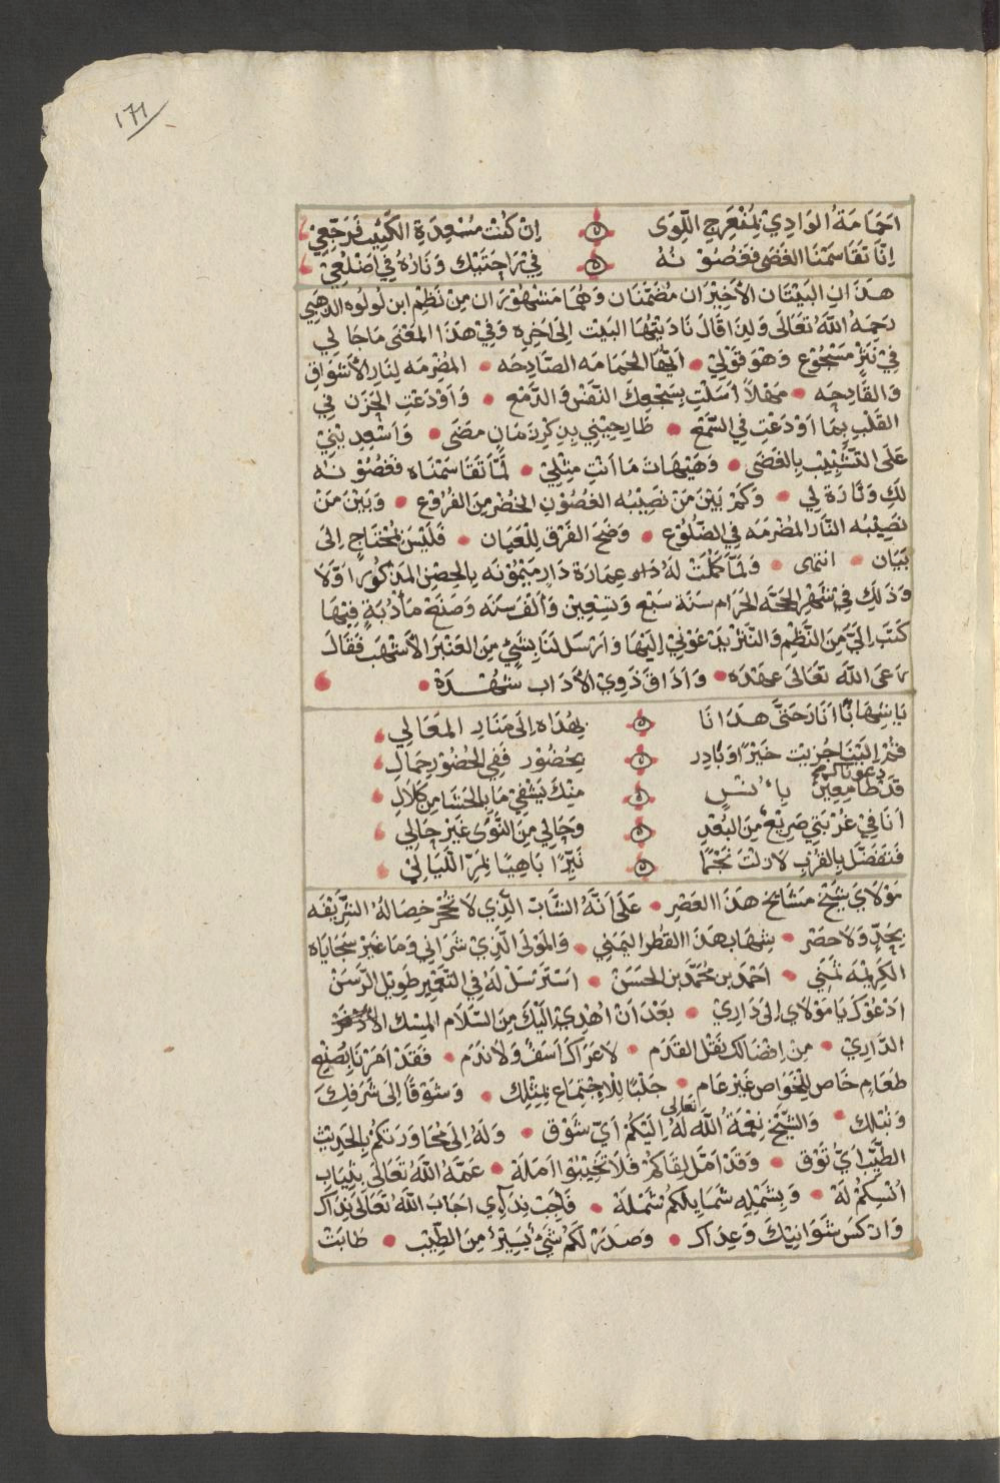 ١٧١
احَمَامَةُ الوَادِيْ بِمُنْعَرِجِ اللِّوَى ۞ اِنْ كُنْتِ مُسْعِدَةِ الكَئِيْبِ فَرَجِّعِيْ
اِنَّا تَقَاسَمْنَا الغَضَى فَغُصُوْنُهُ ۞ فِيْ رَاحَتَيْكِ وَنَارُهُ فِيْ اَضْلُعِيْ
هذَانِ البَيْتَانِ الأَخِيْرَانِ مُضَمَّنَانِ وَهُمَا مَشْهُوْرَانِ مِنْ نَظْمِ ابن لولوه الذهبي
رَحِمَهُ اللَّهُ تَعَالَى وَلِذَا قَالَ نَادَيْتُهَا البَيْت اِلَى اَخِرِهِ وَفِيْ هَذَا المَعْنَى مَاجَا لِي
فِيْ نَثْرٍ مَسْجُوْعٍ وَهْوَ قَوْلِيْ • اَيَّتُهَا الحَمَامَه الصَّادِحَه • المُضْرِمَه لِنَارِ الأَشْوَاقِ
وَالقَادِحَه • مَهْلاً اَسَلْتِ بِسَجْعِكَ النَّفْسَ وَالدَّمْع • وَاَوْدَعْتِ الحُزْنَ فِي
القَلْبِ بِمَا اَوْدَعْتِ فِي السَّمْعِ • طَارِحِيْنِي بِذِكْرِ زَمَانٍ مَضَى • وَاَسْعِدِيْنِيْ
عَلَى التَّشْبِيْبِ بِالغَضَى • وَهَيْهَاتَ مَا اَنْتِ مِثْلِيْ • لَمَّا تَقَاسَمْنَاه فَغُصُوْنُه
لَكِ وَنَارُهُ لِي • وَكَمْ بَيْنَ مَنْ نَصِيْبُه الغُصُوْن الخُضْر مِنَ الفُرُوْع • وَبَيْنَ مَنْ
نَصِيْبُه النَّار المُضْرَمَه فِي الضُّلُوْعِ • وَضَحَ الفَرْق لِلْعَيَان • فَلَيْسَ بِمُحْتَاجٍ اِلَى
بَيَان • انتهى • وَلَمَّا كَمُلَتْ لَهُ عِمَارَة دَارِ مَيْمُوْنَه بِالحِصْنِ المَذْكُوْرِ اَوَّلاً
وَذَلِكَ فِيْ شَهْرِ الحَجَّه الحَرَام سَنَة سَبْع وَتِسْعِيْن وَاَلْف سَنَه وَصَنَعَ مَأْدُبَةً فِيْهَا
كَتَبَ اِلَيَّ مِنَ النَّظْمِ وَالنَّثْرِ يَدْعُوْنِيْ اِلَيْهَا وَاَرْسَل لَنَا بِشَيْءٍ مِنَ العَنْبَرِ الأَشْهَبِ فَقَالَ
رَعَى اللَّه تَعَالَى عَهْدَه • وَاَذَاقَ ذَوِي الأَدَابِ شَهْدَهُ •
يَا شِهَابًا اَنَارَ حَتَّى هَدَانَا ۞ بِهُدَاه اِلَى مَنَارِ المَعَالِي
قُمْ اِلَيْنَا جُزِيْتَ خَيْرًا وَبَادِر ۞ بِحُضُوْرٍ فَفِي الحُضُوْرِ جَمَالِ
قَدْ دَعَوْنَاكُمُ ۞ مِنْكَ يَشْفِيْ مَا بِالحَشَا مِنْ كَلاَلِ
اَنَا فِيْ غُرْبَتِي صَرِيْعٌ مِنَ البُعْدِ ۞ وَحَالِي مِنَ النَّوَى غَيْرُ حَالِي
فَتَفَضَّلْ بِالقُرْبِ لاَزِلْتَ نَجْمًا ۞ نَيِّرًا بَاهِيًا بِمَرِّ اللَّيَالِيْ
مَوْلاَيَ شَيْخ مَشَايِخ هَذَا العَصْرِ • عَلَى اَنَّهُ الشَّابّ الَّذِي لاَ تُحْصَرُ خِصَالُهُ الشَّرِيْفَه
بِحَدٍّ وَلاَ حَصْر • شِهَاب هَذَا القُطْرِ اليَمَنِي • وَالمَوْلَى الَّذِيْ شَرَانِي وَمَا غَيْر سَجَايَاه
الكَرِيْمَه ثَمَنِي • اَحْمَد بن مُحَمَّد بن الحَسَن • اَسْتَرْسَلَ لَهُ فِي التَّعْمِيْر طَوِيْل الرَّسَن
اَدْعُوْكَ يَا مَوْلاَي اِلَى دَارِي • بَعْدَ اَنْ اُهْدِيْ اِلَيْكَ مِنَ السَّلاَمِ المِسْك الأَذْفَر
الدَّارِي • مِنْ اِفْضَالِكَ نَقْل القَدَم • لاَعَرَاكَ اَسَفٌ وَلاَ نَدَم • فَقَدْ اَمَرْنَا بِصُنْعِ
طَعَامٍ خَاص لِلْخَوَاصِ غَيْر عَام • جَلْبًا لِلْاِجْتِمَاعِ بِمِثْلِكَ • وَشَوْقًا اِلَى شَرَفِكَ
وَنُبْلِكَ • وَالشَّيْخ نِعْمَةُ اللَّه لَهُ تَعَالَى اِلَيْكُمْ اَيّ شَوْق • وَلَهُ اِلَى مُحَاوَرَتِكُمْ بِالحَدِيْثِ
الطَّيِّبِ اَيّ تَوْق • وَقَدْ اَمَّلَ لِقَاكُمْ فَلاَ تُخَيِّبُوْا اَمَلَهُ • عَمَّهُ اللَّهُ تَعَالَى بِثِيَابِ
اُنْسِكُمْ لَهُ • وَبِشَمْلِهِ شَمَايِلكُمْ شَمْلَهُ • فَاَجِبْ نِدَآءِي اَجَابَ اللَّهُ تَعَالَى نِدَاكَ
وَارْكَسَ شَوَانِيْكَ وَعِدَاكَ • وَصَدَرَ لَكُمْ شَيْءٌ يَسِيْرٌ مِنَ الطِّيْبِ • طَابَتْ